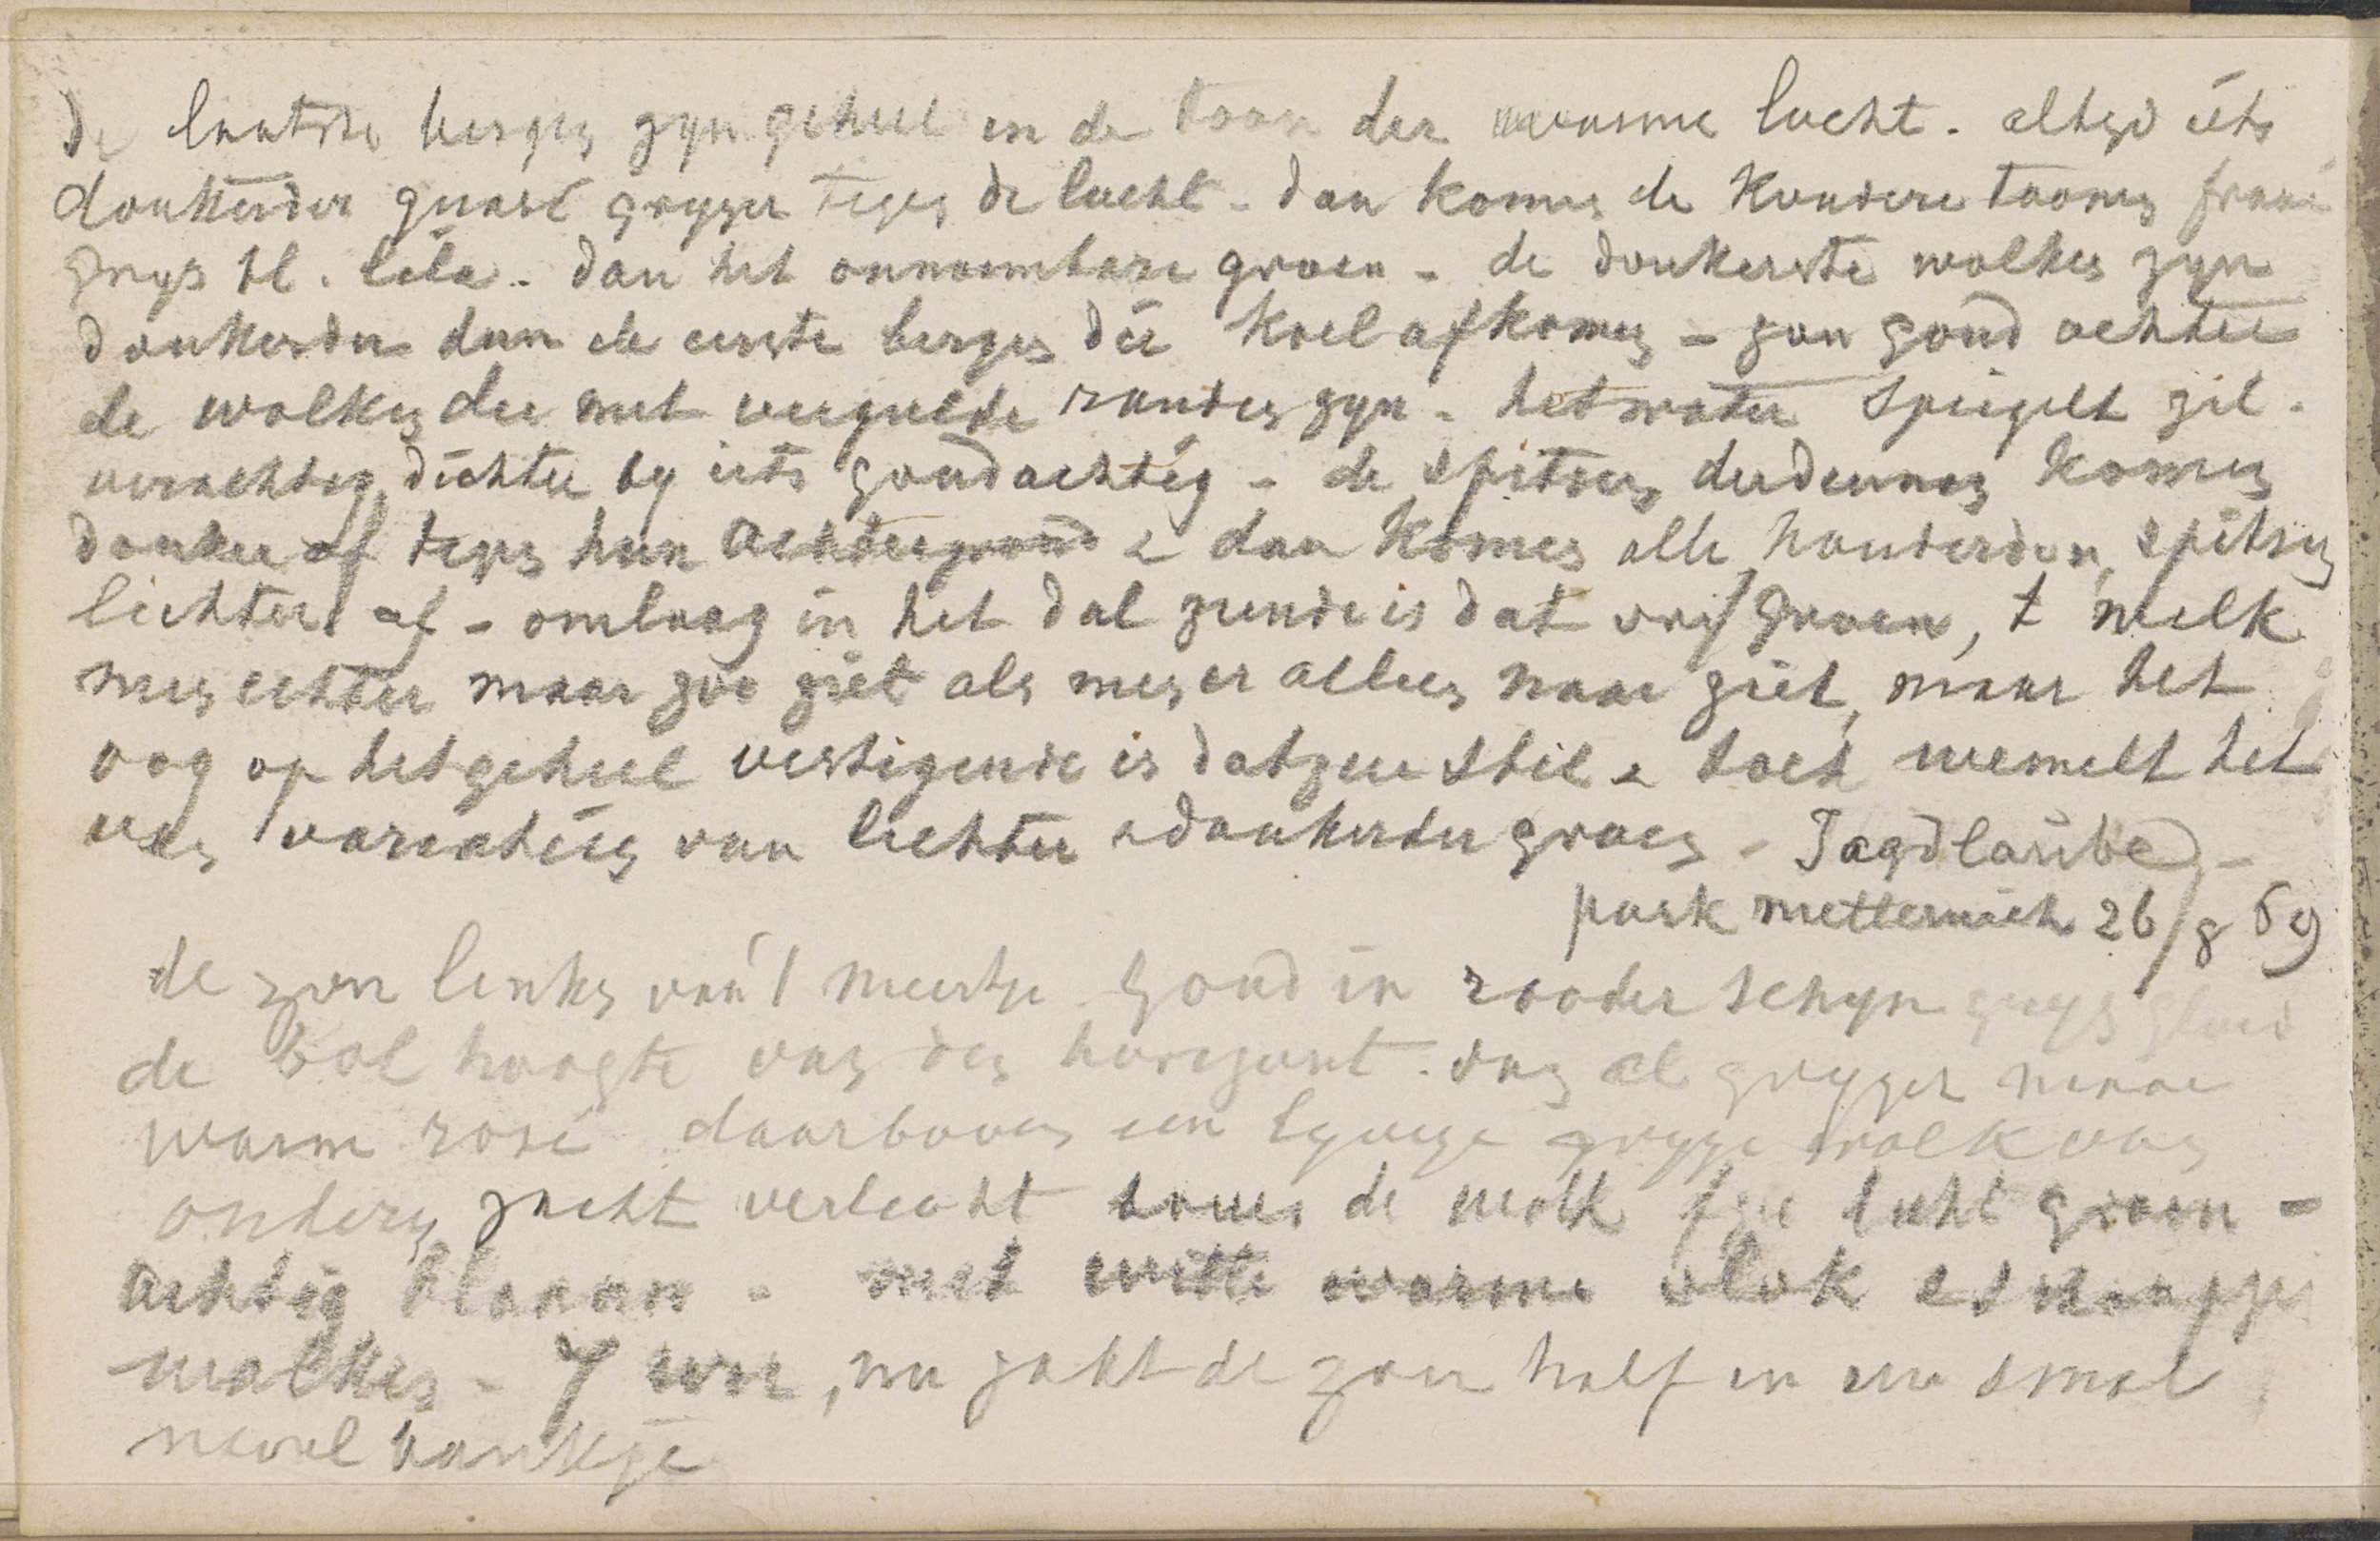 de laatste bergen zyn geheel in de toon der warme lucht. altyd iets
donkerder quasi gryzer tegen de lucht - dan komen de koudere toonen fraai
grys bl. lila - dan het onnoembare groen - de donkerste wolken zyn
donkerder dan de eerste bergen die koel afkomen - zon goud achter
de wolken die met vergulde randen zyn - het water spiegelt zil-
verachtig, dichter by iets goudachtig - de spitsen der dennen komen
donker af tegen hun achtergrond & dan komen alle honderden spitsen
lichter af - omlaag in het dal ziende is dat vry groen, t welk
men echter maar zoo ziet als men er alleen naar ziet, maar het
oog op het geheel vestigende is dat zeer stil & toch wemelt het
van variatiën van lichter & donkerder groen - Jagdlaube -
park metternich 26/8 69
de zon links van 't meertje goud in rooder schyn grys
de bol hoogte van den horizont. dan al gryzer naar
warm rosé daarboven een gryze wolk van
onderen zacht verlicht boven de wolk fyne lucht groen -
achtig blaauw - met witte warme vlok
wolken - 7 uur, nu zakt de zon half in een smal
nevel bankje